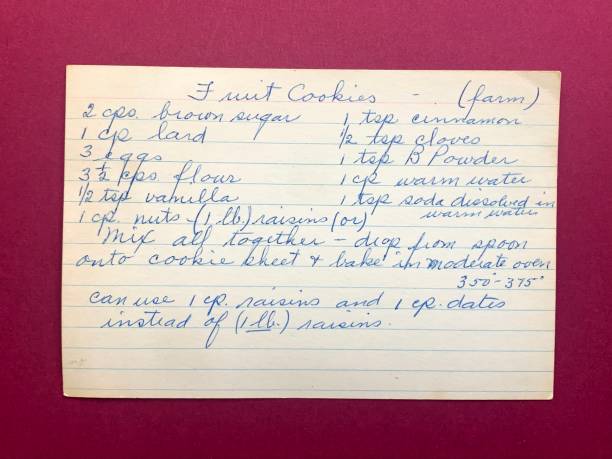 Fruit Cookies - (farm)
2 cps. brown sugar 1 tsp cinnamon
1 cp lard ½ tsp cloves
3 eggs 1 tsp B Powder
3 ½ cps. flour 1 cp warm water
½ tsp vanilla 1 tsp soda dissolved in
warm water
1 cp. nuts - (1 lb.) raisins (or)
Mix all together - drop from spoon
onto cookie sheet + bake in moderate oven
350° - 375°
can use 1 cp. raisins and 1 cp. dates
instead of (1 lb.) raisins.